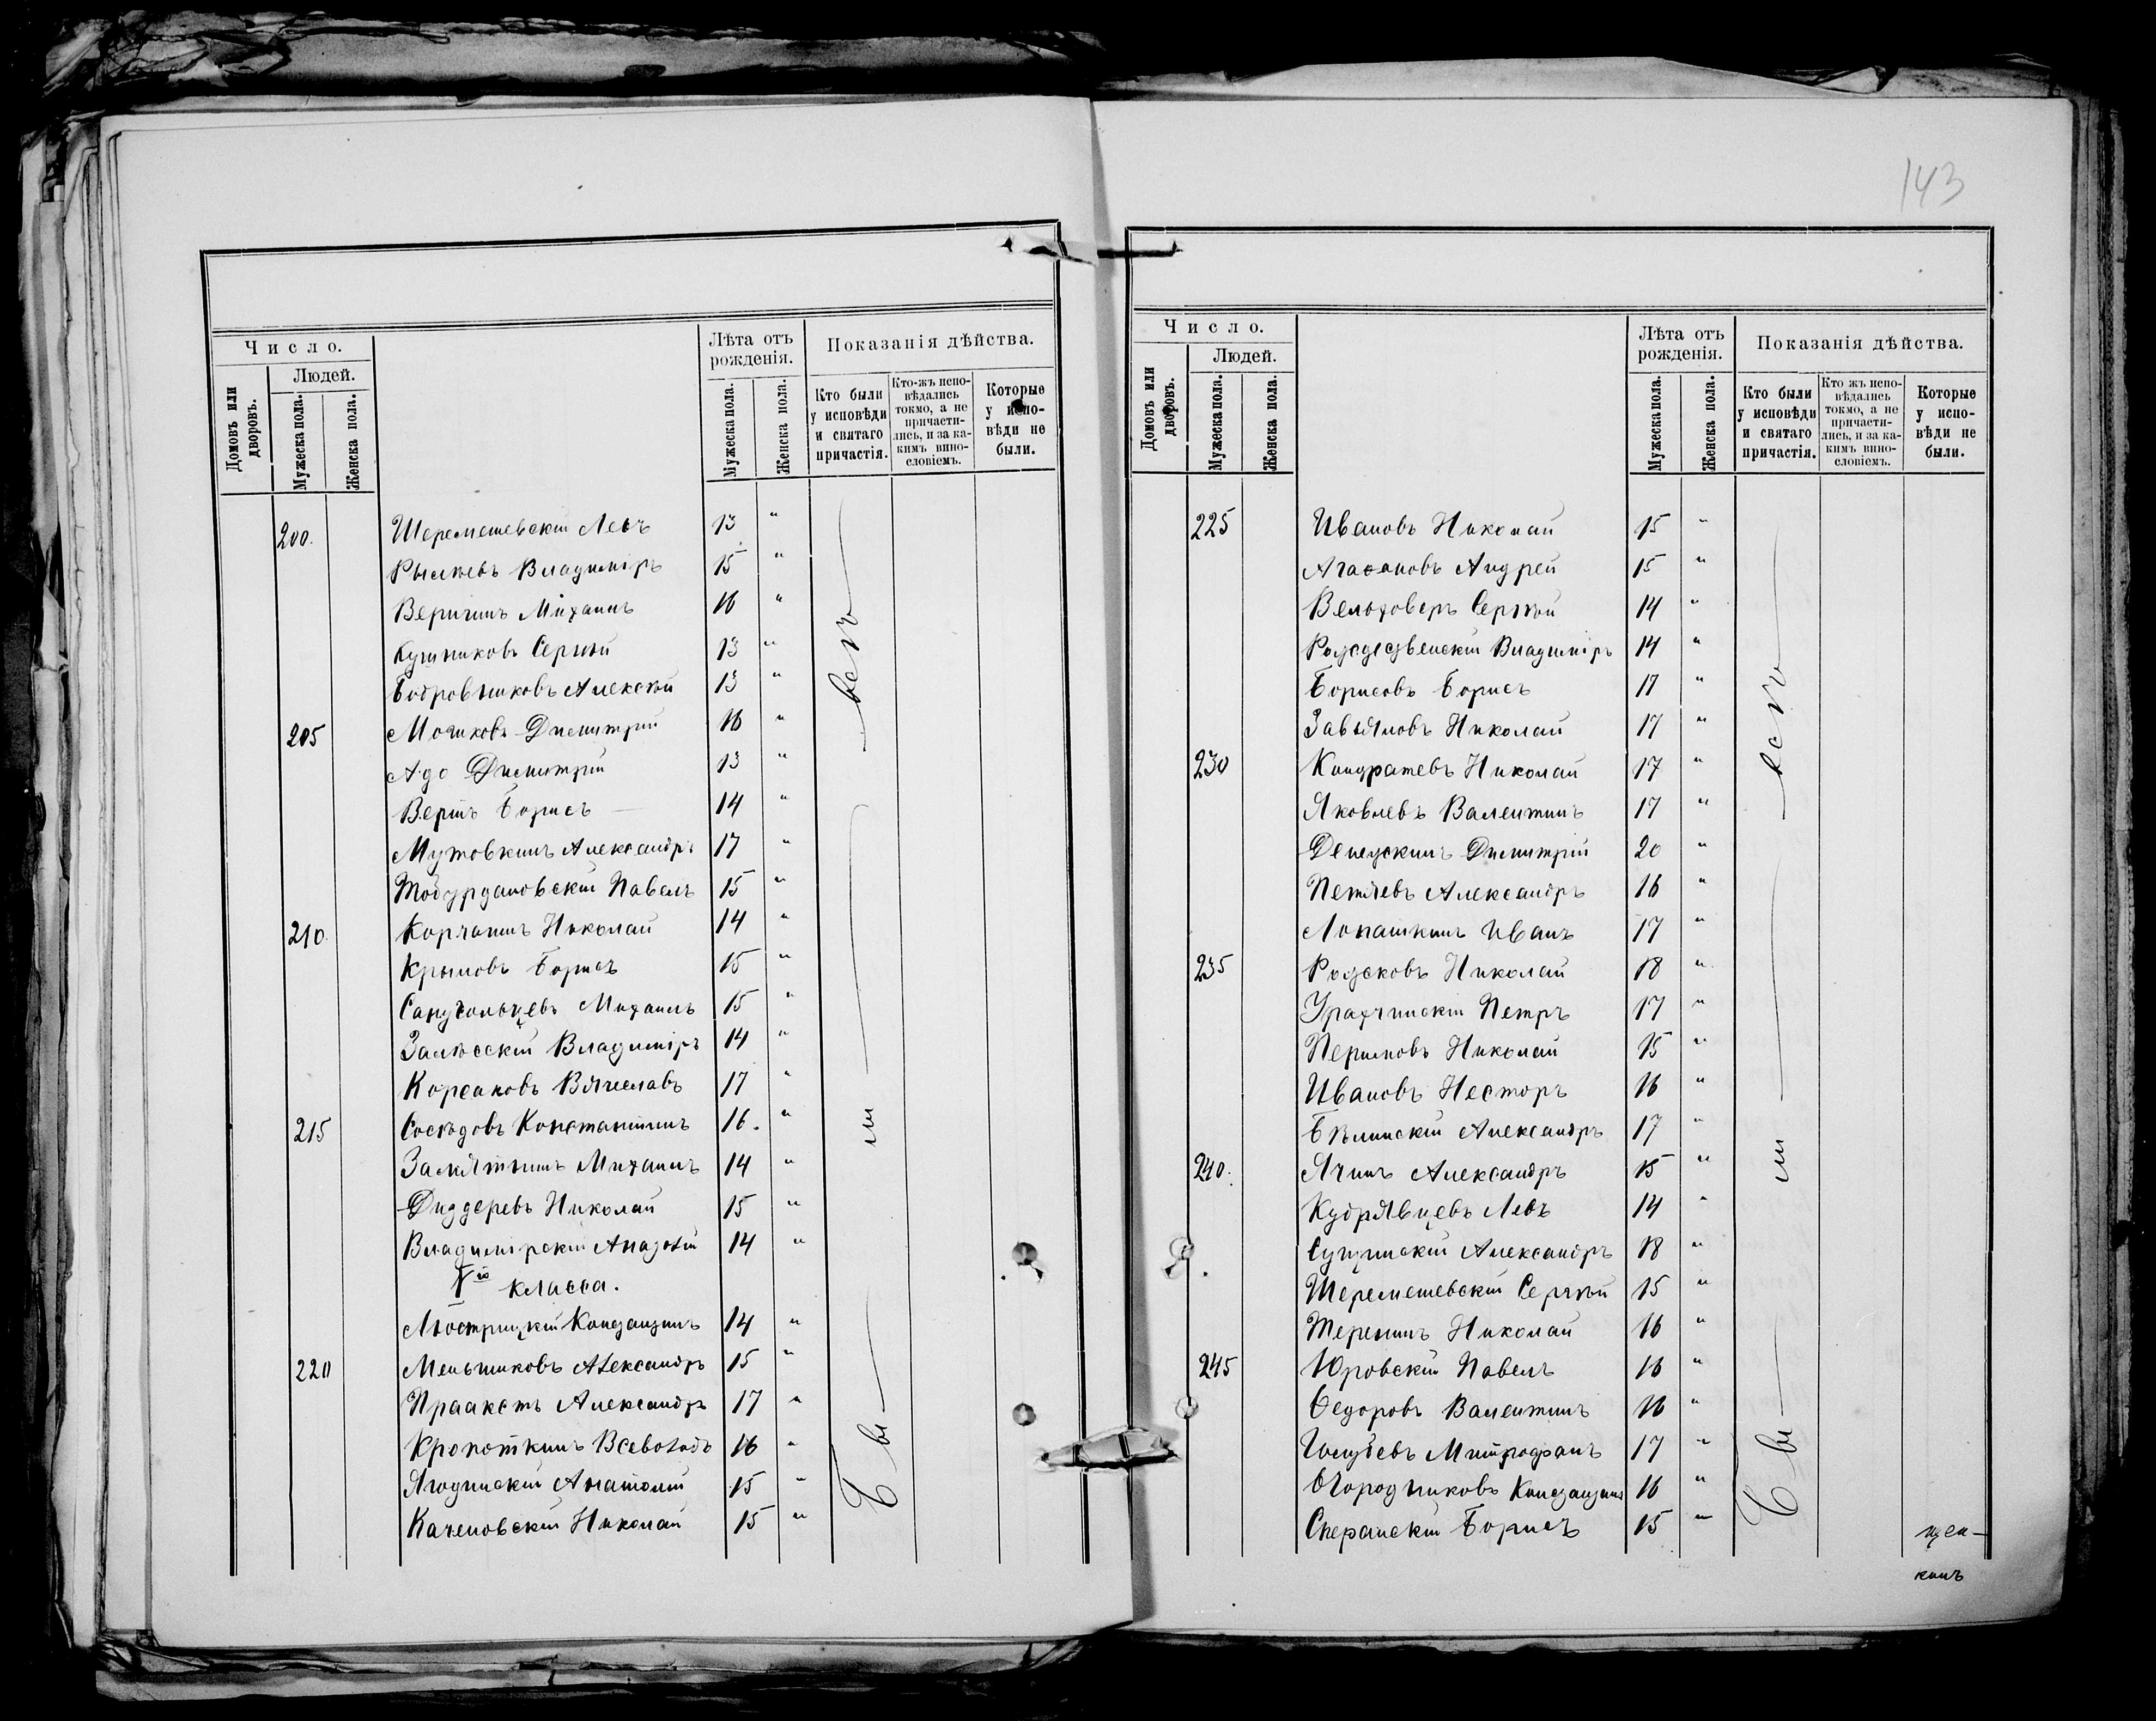 143
Число.
Домовъ или дворовъ.
Людей.
Мужеска пола.
Женска пола.
Лѣта отъ рожденія.
Мужеска пола.
Женска пола.
Показанія дѣйства.
Кто были у исповѣди и святаго причастія.
Кто-жъ исповѣдались токмо, а не причастились, и за какимъ винословіемъ.
Которые у исповѣди не были.
200. Шереметевскій Левъ 13 "
Рылѣевъ Владиміръ 15 "
Веригинъ Михаилъ 16 "
Кушниковъ Сергѣй 13 "
Бобровниковъ Алексѣй 13 "
205 Мочиковъ Димитрій 16 "
Адо Димитрій 13 "
Борисъ 14 "
Мутовкинъ Александръ 17 "
Павелъ 15 "
210. Корчагинъ Николай 14 "
Крымовъ Борисъ 15 "
Михаилъ 15 "
Залѣсскій Владиміръ 14 "
Корсаковъ Вячеславъ 17 "
215 Сосѣдовъ Константинъ 16. "
Замятнинъ Михаилъ 14 "
Диддеревъ Николай 15 "
Владимірскій 14 "
V го класса.
14 "
220 Меньшиковъ Александръ 15 "
Праакстъ Александръ 17 "
Кропоткинъ Всеволодъ 16 "
Ягодинскій Анатолій 15 "
Каченовскій Николай 15 "
Число.
Домовъ или дворовъ.
Людей.
Мужеска пола.
Женска пола.
Лѣта отъ рожденія.
Мужеска пола.
Женска пола.
Показанія дѣйства.
Кто были у исповѣди и святаго причастія.
Кто жъ исповѣдались токмо, а не причастились, и за какимъ винословіемъ.
Которые у исповѣди не были.
225 Ивановъ Николай 15 "
Агаѳоновъ Андрей 15 "
Вельховеръ Сергѣй 14 "
Рождественскій Владиміръ 14 "
Борисовъ Борисъ 17 "
Завьяловъ Николай 17 "
230 Кондратевъ Николай 17 "
Яковлевъ Валентинъ 17 "
Денежкинъ Димитрій 20 "
Петлевъ Александръ 16 "
Лопаткинъ Иванъ 17 "
235 Рожковъ Николай 18 "
Петръ 17 "
Перловъ Николай 15 "
Ивановъ Несторъ 16 "
Бѣлинскій Александръ 17 "
240. Ячинъ Александръ 15 "
Кудрявцевъ Левъ 14 "
Сущинскій Александръ 18 "
Шереметевскій Сергѣй 15 "
Теренинъ Николай 16 "
245 Юровскій Павелъ 16 "
Ѳедоровъ Валентинъ 16 "
Голубевъ Митрофанъ 17 "
Огородниковъ 16 "
Сперанскій Борисъ 15 "